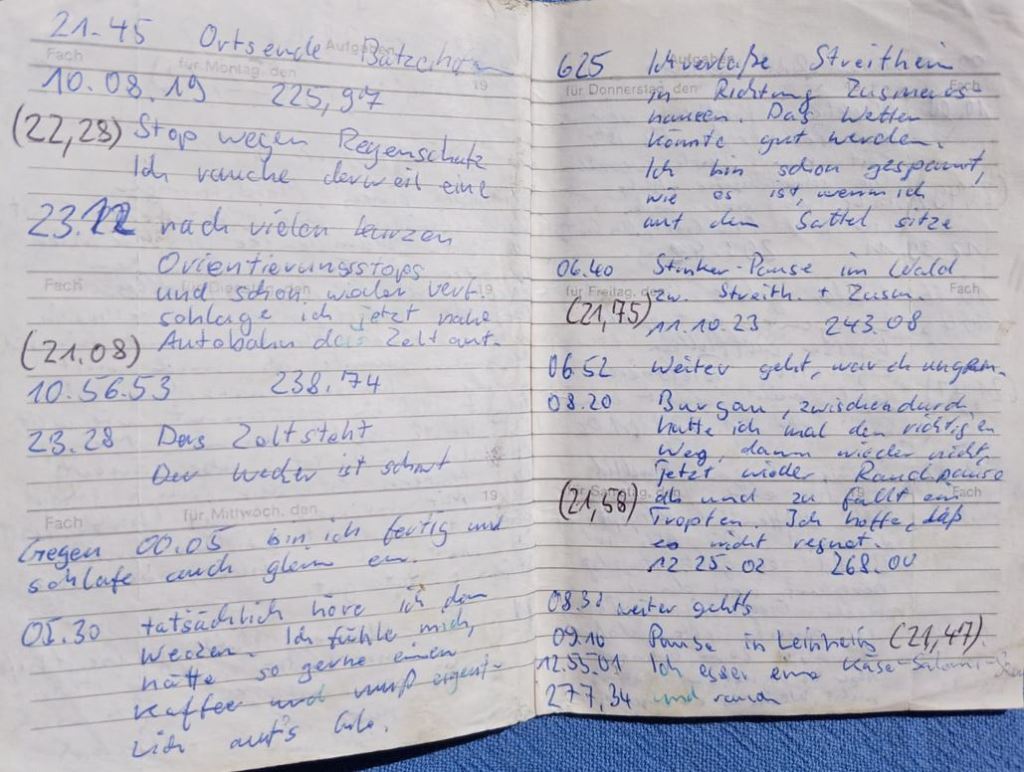 21.45 Ortsende
Aufgaben
Fach für Montag, den 19
10.08.19 225,97
(22,28) Stop wegen Regenschutz
Ich rauche derweil eine
23.12 nach vielen kurzen
Orientierungsstops
Fach für Dienstag 19
und schon wieder verf.
schlage ich jetzt nahe
(21.08) Autobahn das Zelt auf.
10.56.53 238.74
23.28 Das Zelt steht
Der Wecker ist scharf
19
Fach für Mittwoch, den
Gegen 00.05 bin ich fertig und
schlafe auch gleich ein.
05.30 tatsächlich höre ich den
Wecker. Ich fühle mich,
hätte so gerne einen
Kaffee und muß eigent-
lich auf's Clo.
Aufgaben
625 Ich verlaße Streitheim
für Donnerstag, den Fach
in Richtung Zusmars-
hausen. Das Wetter
könnte gut werden.
Ich bin schon gespannt,
wie es ist, wenn ich
auf dem Sattel sitze
06.40 Stinker-Pause im Wald
Fach für Freitag, den
(21,75) zw. Streith. + Zusm.
11.10.23 243.08
06.52 Weiter geht,
08.20 Burgau, zwischendurch
hatte ich mal den richtigen
Weg, dann wieder nicht,
jetzt wieder. Rauchpause
Fach
(21,58) ab und zu fällt ein
Tropfen. Ich hoffe, daß
es nicht regnet.
12 25.02 268.00
08.32 weiter gehts
09.10 Pause in Leinheim (21,47)
12.55.01 Ich esser eine Käse-Salami-
277,34 und